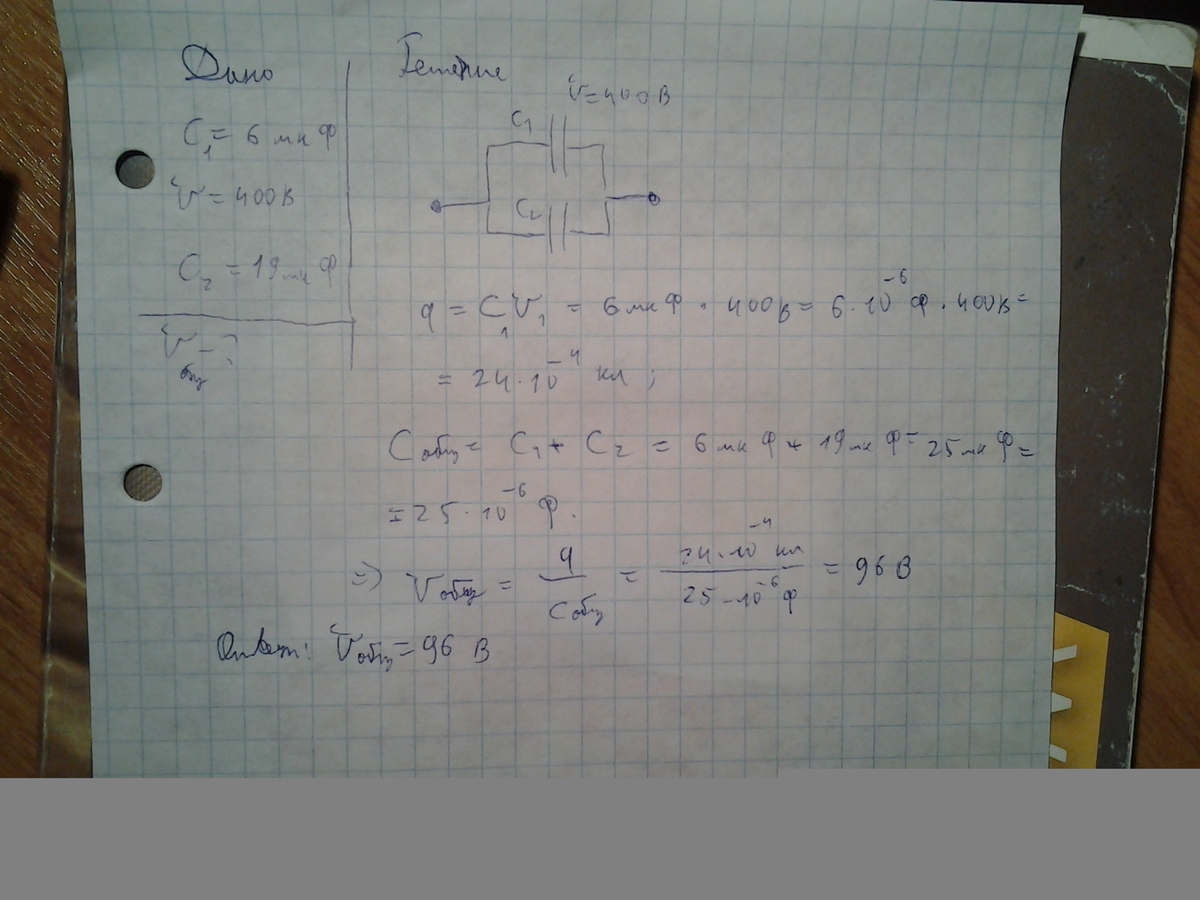 Дано
C₁ = 6 мкФ
U = 400В
C₂ = 19 мкФ
Uобщ - ?
Решение
U = 400 В
C₁
C₂
q = C₁U₁ = 6 мкФ · 400В = 6 · 10⁻⁶ Ф · 400В =
= 24 · 10⁻⁴ кл ;
Cобщ = C₁ + C₂ = 6 мкФ + 19 мкФ = 25 мкФ =
= 25 · 10⁻⁶ Ф .
=> Uобщ = q / Cобщ = 24 · 10⁻⁴ кл / 25 · 10⁻⁶ Ф = 96 В
Ответ: Uобщ = 96 В